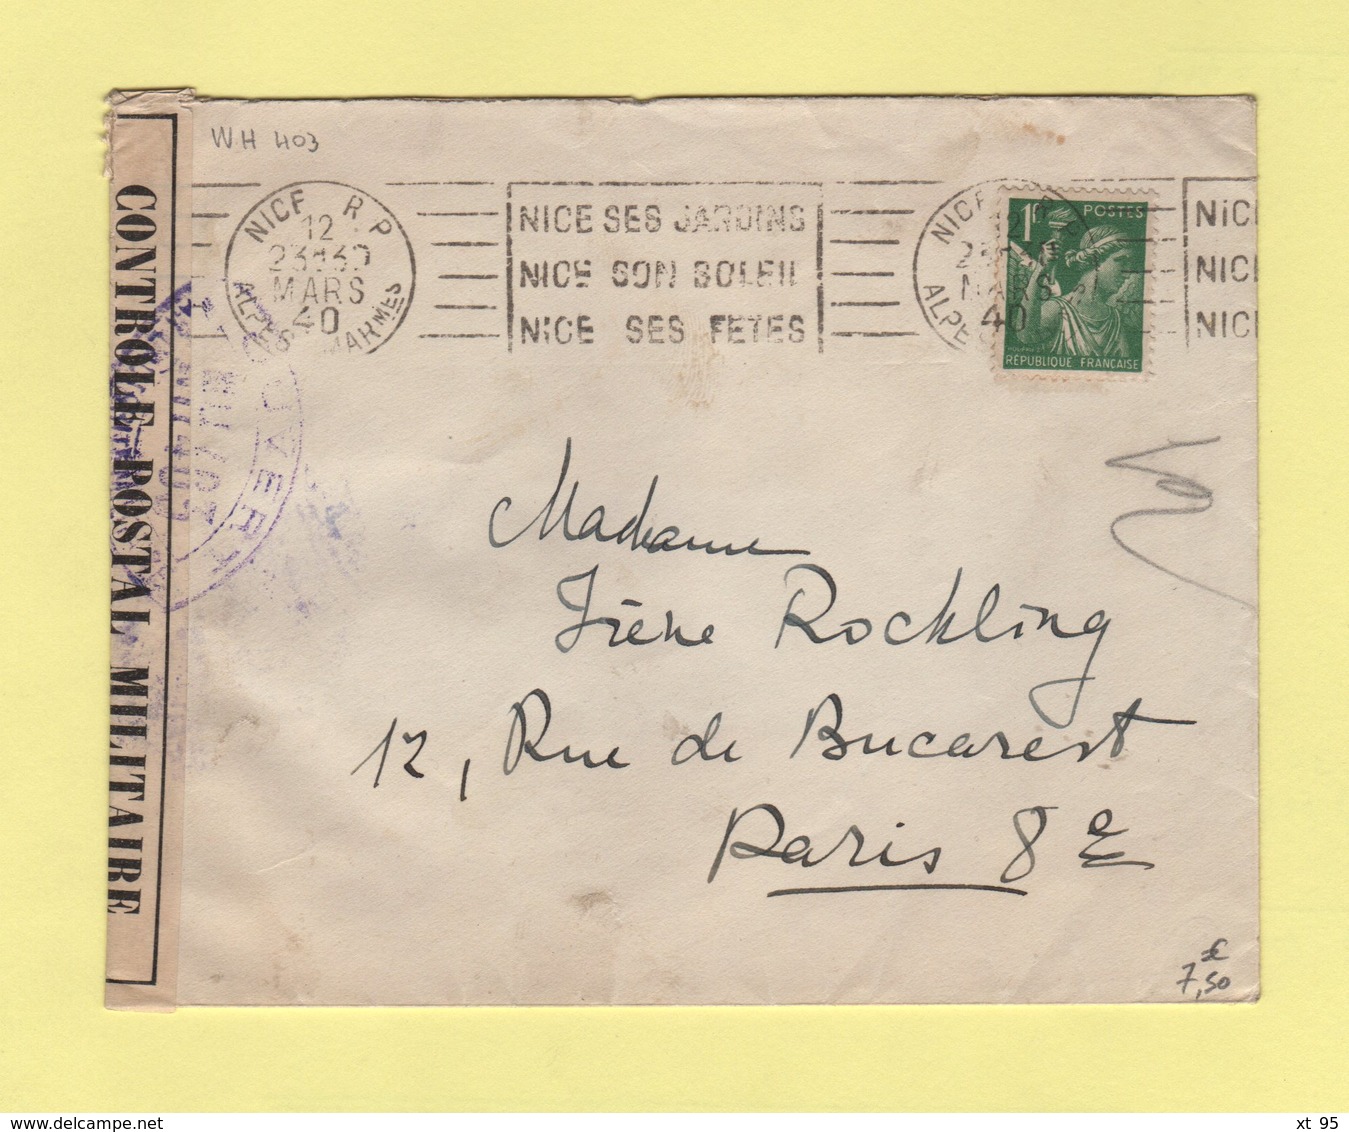 WH 403
NICE R.P.
12
23H30
MARS
40
ALPES MARMES
NICE SES JARDINS
NICE SON SOLEIL
NICE SES FETES
NICE
MARS
40
ALPE
1F POSTES
RÉPUBLIQUE FRANÇAISE
NIC
NIC
NIC
CONTROLE POSTAL MILITAIRE
OUVERT
Madame
Irène Rockling
12, Rue de Bucarest
Paris 8e
€
7,50
delcampe.net
xt 95